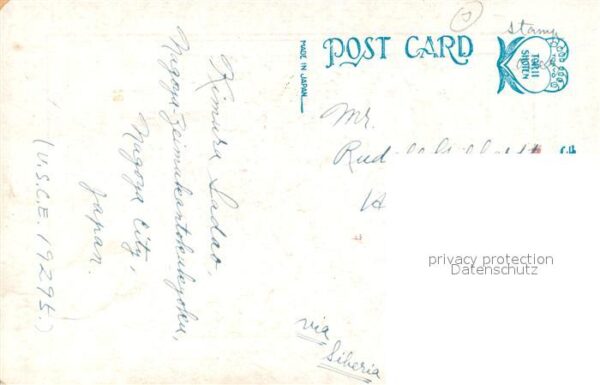 POST CARD
MADE IN JAPAN
stamp
TORII
SHOTEN
Mr.
privacy protection
Datenschutz
via
Siberia
Kimura Sadao,
Nagoya Zeimukantokukyoku,
Nagoya City,
Japan.
(U.S.C.E. 19295.)